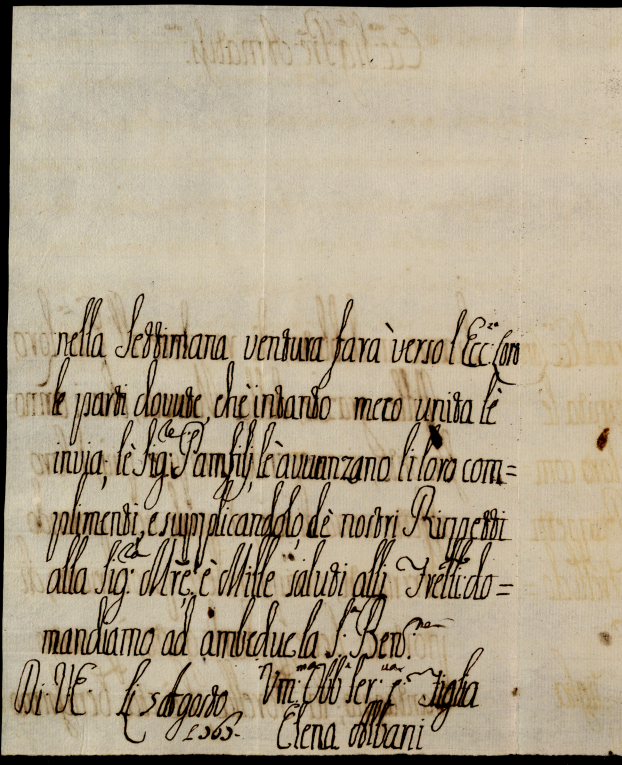 nella Settimana ventura farà verso l'Ecc.ze loro
le parti dovute, chè intanto meco unita lè
invia, lè Sig.re Panfilj, lè avvanzano li loro com=
plimenti, e supplicandolo dè nostri Rispetti
alla Sig.ra Mrẽ, è Mille saluti alli Frelli: do=
mandiamo ad ambedue la S.ta Bend.ne
Di V.E. li 5 Agosto Um.ma Obb. Ser. è Figlia
Elena Albani